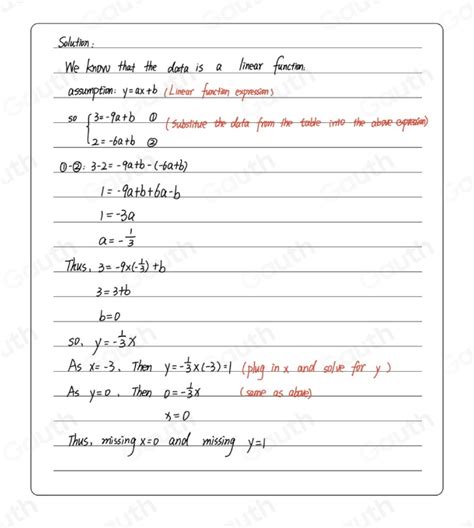 Solution:
We know that the data is a linear function.
assumption: y=ax+b (Linear function expression)
so {3=-9a+b ①
2=-6a+b ② (Substitute the data from the table into the above expression)
①-②: 3-2=-9a+b-(-6a+b)
1=-9a+b+6a-b
1=-3a
a=-1/3
Thus, 3=-9×(-1/3)+b
3=3+b
b=0
so, y=-1/3x
As x=-3, Then y=-1/3×(-3)=1 (plug in x and solve for y)
As y=0, Then 0=-1/3x (same as above)
x=0
Thus, missing x=0 and missing y=1
Gauth